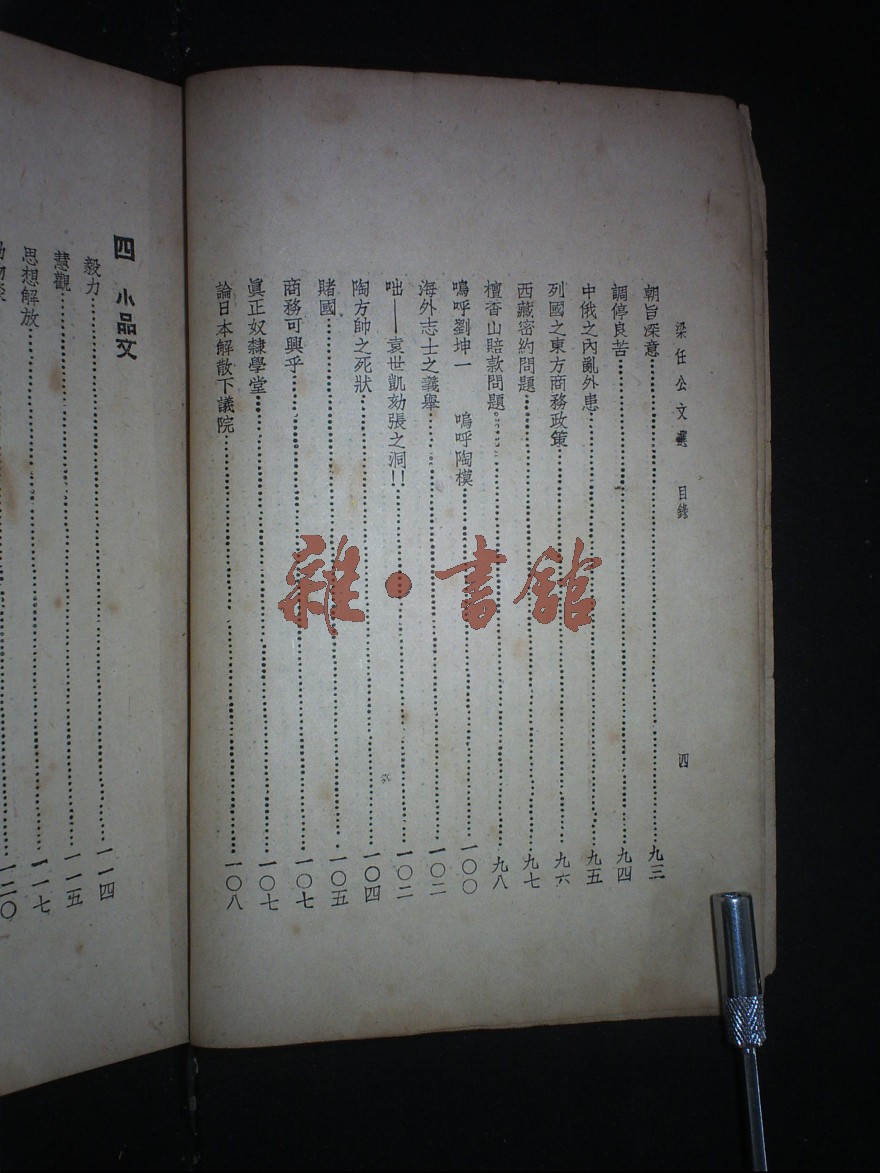 梁任公文選 目錄 四
朝旨深意 九三
調停良苦 九四
中俄之內亂外患 九五
列國之東方商務政策 九六
西藏密約問題 九七
檀香山賠款問題 九八
嗚呼劉坤一 嗚呼陶模 一〇〇
海外志士之義舉 一〇二
咄——袁世凱劾張之洞!! 一〇二
陶方帥之死狀 一〇四
賭國 一〇五
商務可興乎 一〇七
眞正奴隸學堂 一〇七
論日本解散下議院 一〇八
四 小品文
毅力 一一四
慧觀 一一五
思想解放 一一七
一二〇
雜·書館